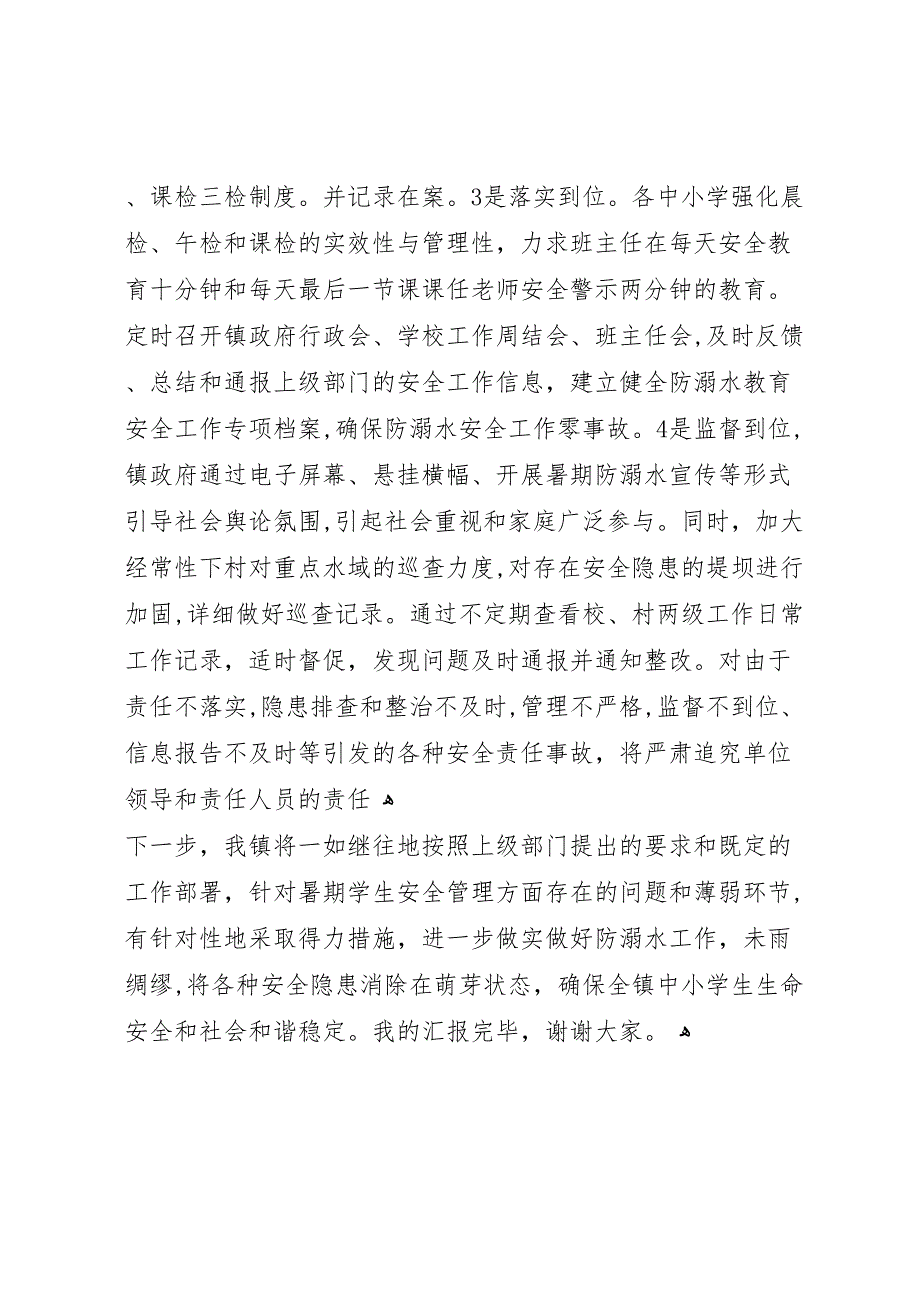 、课检三检制度。并记录在案。3是落实到位。各中小学强化晨
检、午检和课检的实效性与管理性，力求班主任在每天安全教
育十分钟和每天最后一节课课任老师安全警示两分钟的教育。
定时召开镇政府行政会、学校工作周结会、班主任会,及时反馈
、总结和通报上级部门的安全工作信息，建立健全防溺水教育
安全工作专项档案,确保防溺水安全工作零事故。4是监督到位,
镇政府通过电子屏幕、悬挂横幅、开展暑期防溺水宣传等形式
引导社会舆论氛围,引起社会重视和家庭广泛参与。同时，加大
经常性下村对重点水域的巡查力度,对存在安全隐患的堤坝进行
加固,详细做好巡查记录。通过不定期查看校、村两级工作日常
工作记录，适时督促，发现问题及时通报并通知整改。对由于
责任不落实,隐患排查和整治不及时,管理不严格,监督不到位、
信息报告不及时等引发的各种安全责任事故，将严肃追究单位
领导和责任人员的责任 ﻫ
下一步，我镇将一如继往地按照上级部门提出的要求和既定的
工作部署，针对暑期学生安全管理方面存在的问题和薄弱环节,
有针对性地采取得力措施，进一步做实做好防溺水工作，未雨
绸缪,将各种安全隐患消除在萌芽状态，确保全镇中小学生生命
安全和社会和谐稳定。我的汇报完毕，谢谢大家。 ﻫ